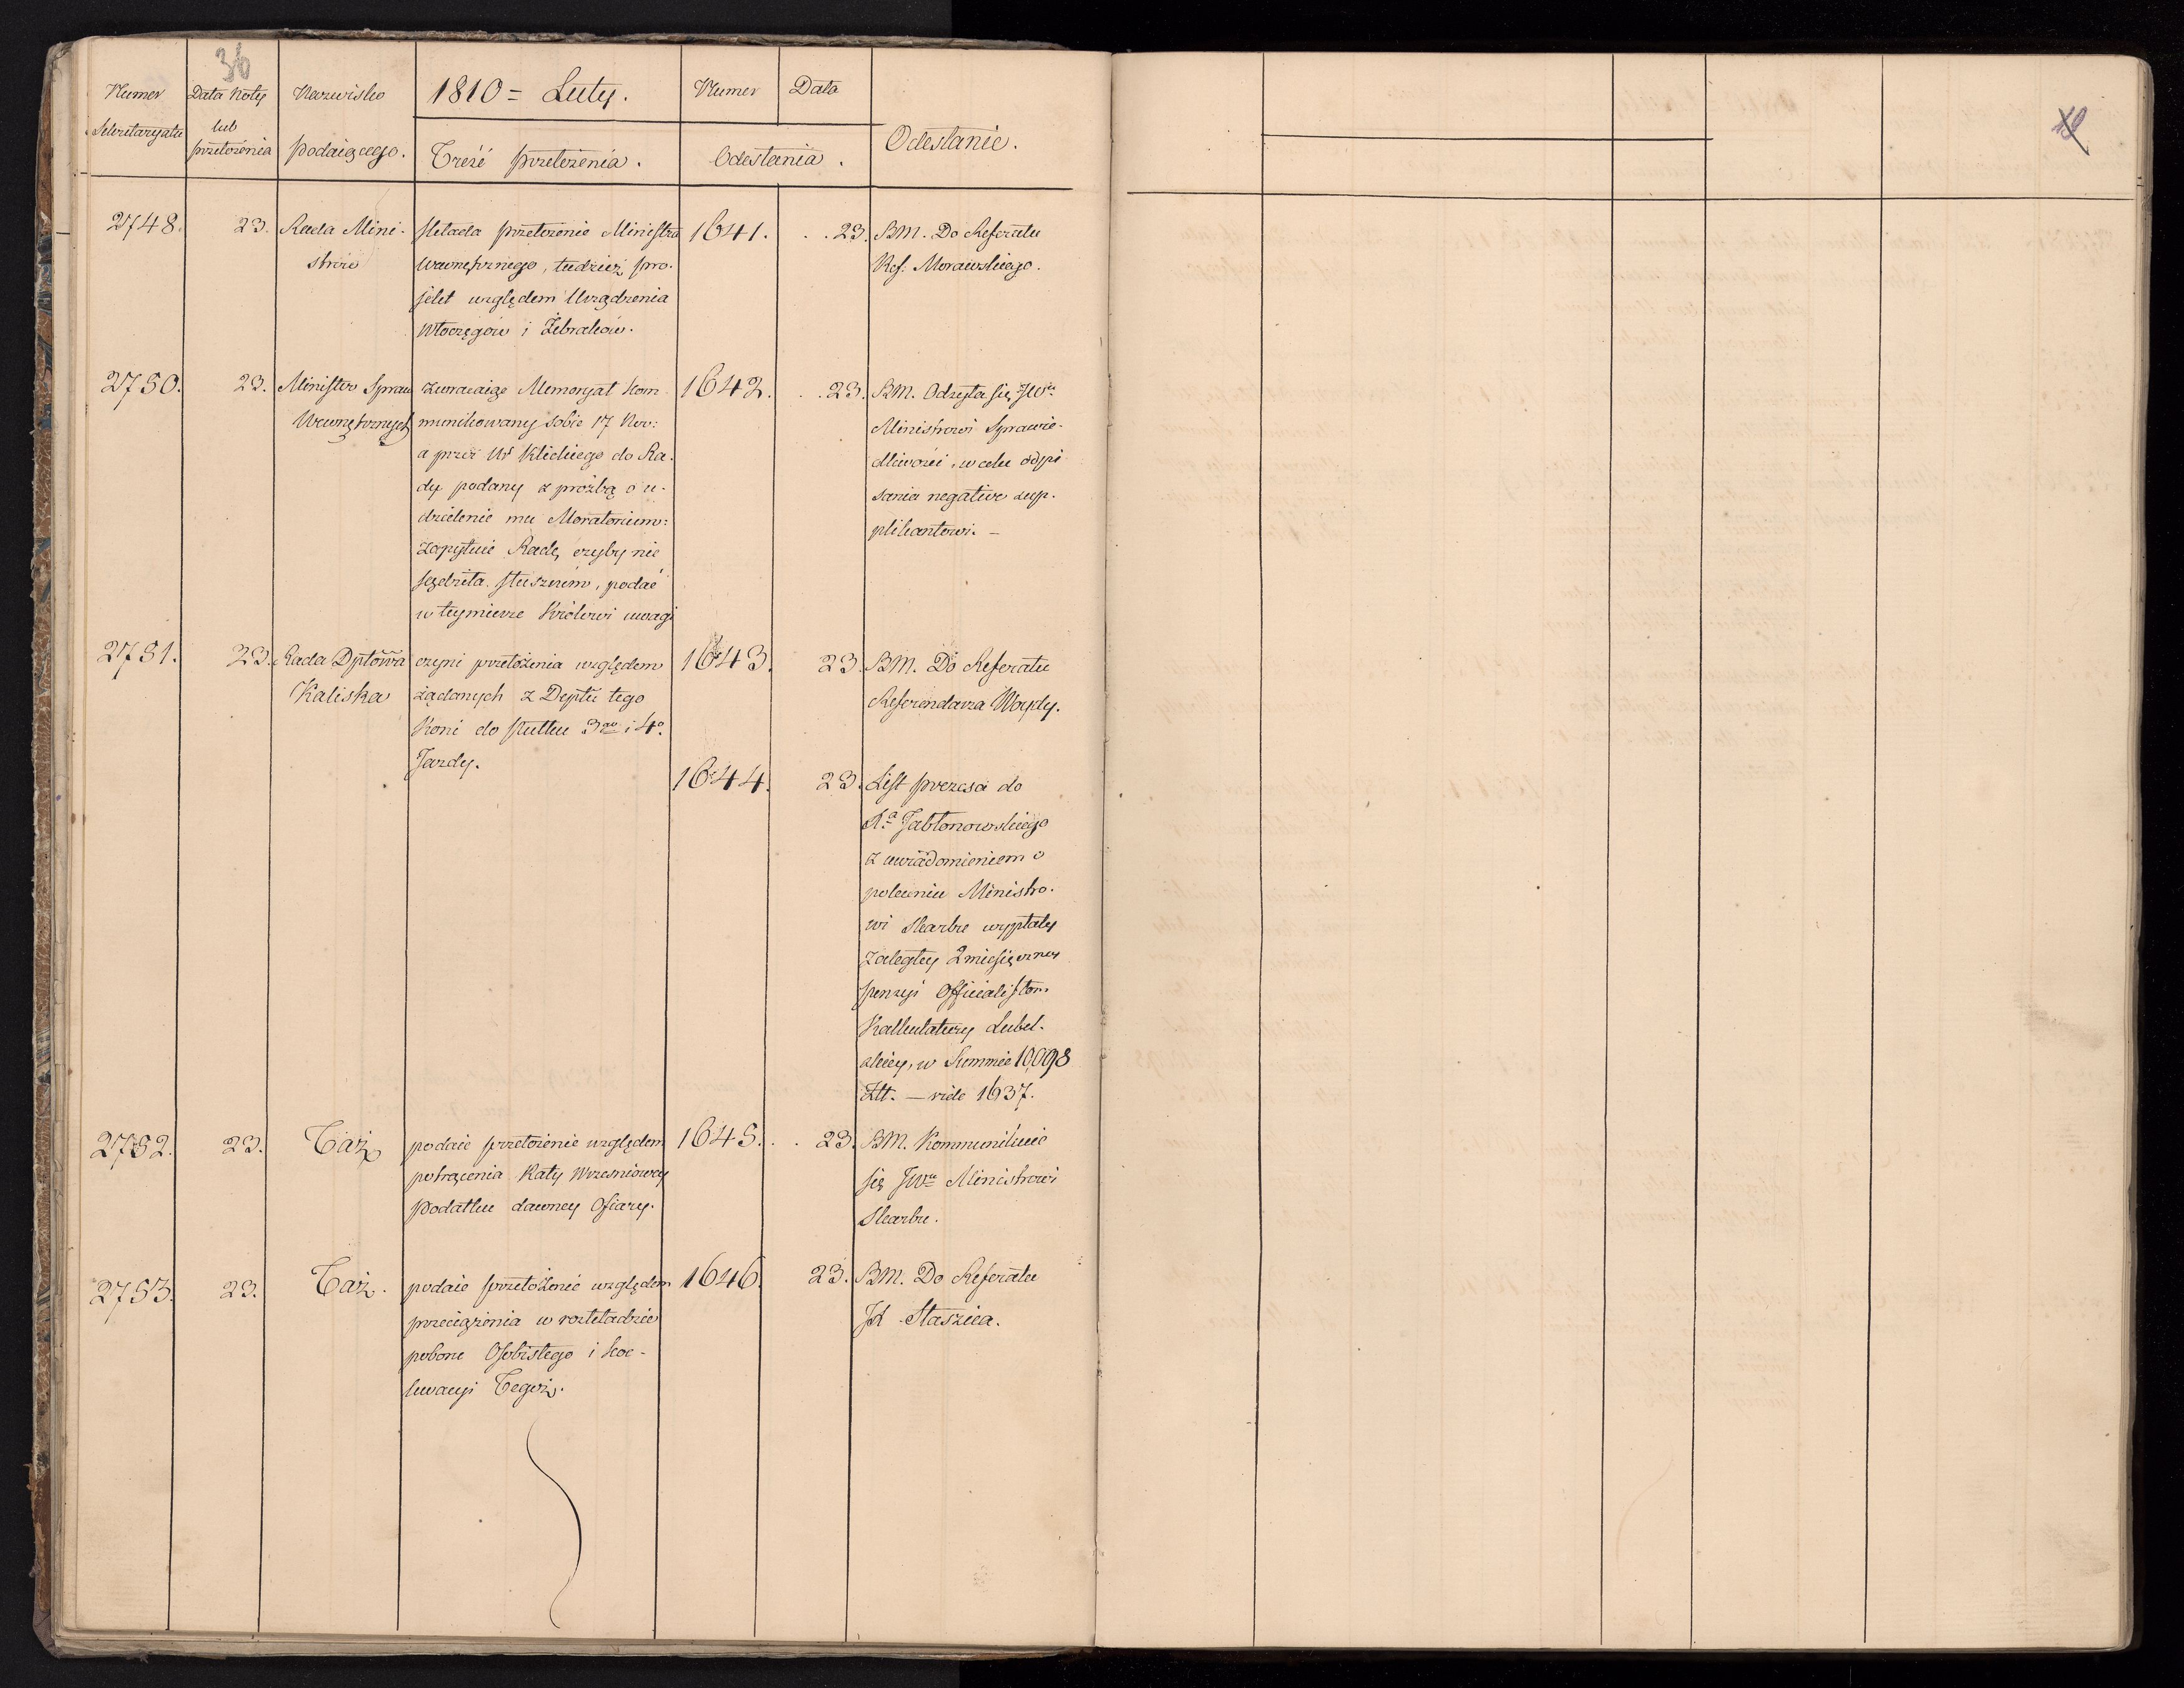 36
Numer Sekretaryatu
Data Noty lub przełożenia
Nazwisko Podaiącego.
1810 = Luty.
Treść przełożenia.
Numer Data
Odesłania.
Odesłanie.
2748. 23.
Rada Mini-
strów
składa przełożenie Ministra
Wewnętrznego, tudzież pro-
jekt względem Urządzenia
Włoczęgów i Żebraków.
1641. 23.
BM. Do Referatu
Ref: Morawskiego.
2750. 23.
Minister Spraw
Wewnętrznych
zwracaiąc Memoryał kom
munikowany sobie 17 Nov:
a przez Ur Klickiego do Ra-
dy podany z prożbą o u-
dzielenie mu Moratorium:
zapytuie Radę czyby nie
sądziła słusznem, podać
w teymierze Królowi uwagi
1642. 23.
BM. Odsyła się JWu
Ministrowi Sprawie-
dliwości, w celu odpi
sania negative sup-
plikantowi. —
2751. 23.
Rada Dptowa
Kaliska
czyni przełożenia względem
żądanych z Deptu tego
Koni do skutku 3go i 4o
Jazdy.
1643. 23.
BM. Do Referatu
Referendarza Woydy.
1644. 23.
List prezesa do
Xa Jabłonowskiego
z uwiadomieniem o
poleceniu Ministro-
wi Skarbu wypłaty
zaległey 2miesięczney
pensyi Officialistom
Kalkulatury Lubel-
skiey, w Summie 10,098
Złt. — vide 1637.
2752. 23.
Taż
podaie przełożenie względem
potrącenia Raty Wrzesniowey
Podatku dawney Ofiary.
1645. 23.
BM. Kommunikuie
się JWu Ministrowi
Skarbu.
2753. 23.
Taż.
podaie przełożenie względem
przeciążenia w rozkładzie
poboru Osobistego i
Tegoż.
1646. 23.
BM. Do Referatu
JX Staszica.